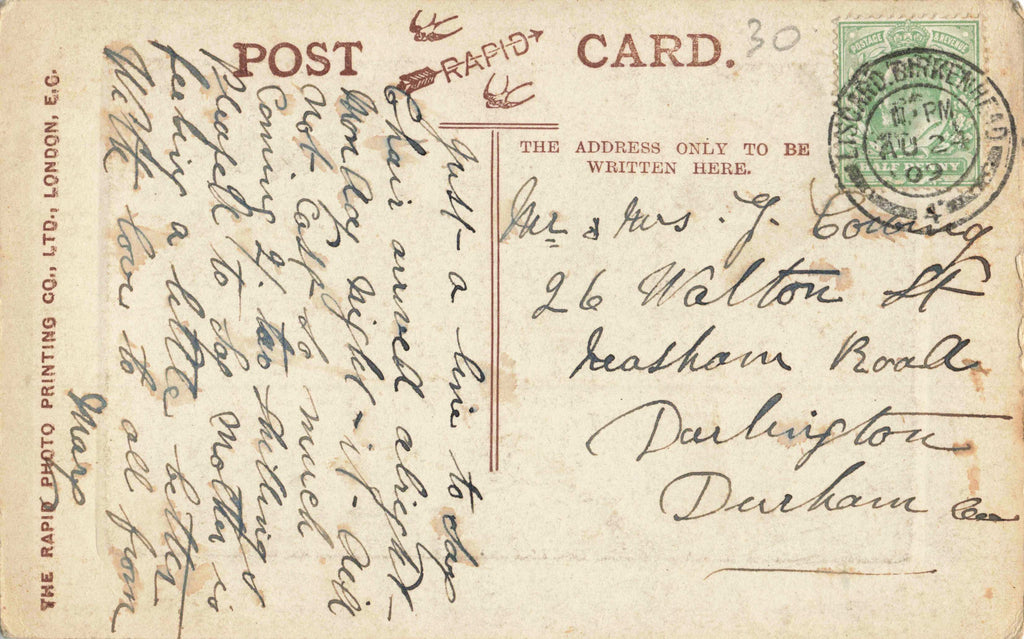 POST CARD.
RAPID
30
POSTAGE & REVENUE
LISCARD BIRKENHEAD
PM
AU 24
09
THE ADDRESS ONLY TO BE
WRITTEN HERE.
Mr & Mrs J. Cowing
26 Walton St
Neasham Road
Darlington
Durham Co
Just a line to say
Chair arrived alright
Monday night - it did
not cost so much
Coming 2/. two shillings
Pleased to say Mother is
feeling a little better
With love to all from
Mary
THE RAPID PHOTO PRINTING CO., LTD., LONDON, E.C.